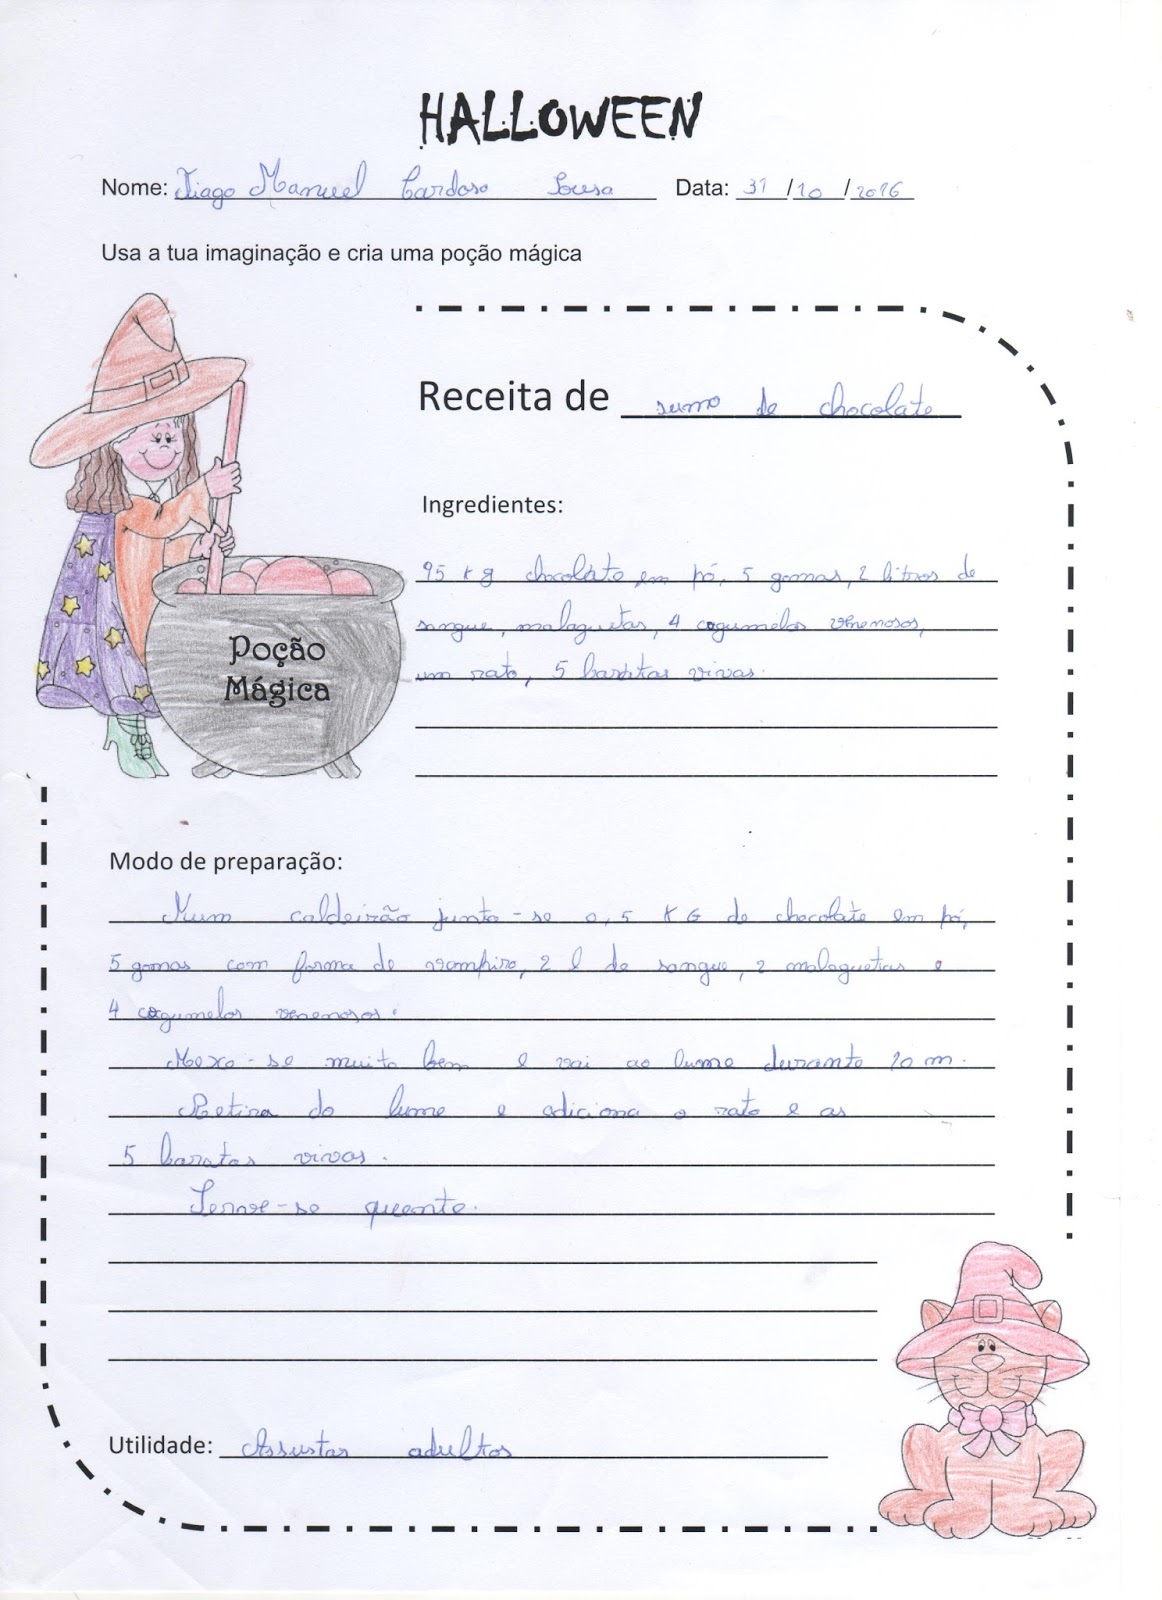 HALLOWEEN
Nome: Tiago Manuel Cardoso Sousa Data: 31/10/2016
Usa a tua imaginação e cria uma poção mágica
Receita de sumo de chocolate
Ingredientes:
Kg chocolate em pó, 5 gomas, 2 litros de
sangue, malaguetas, 4 cogumelos venenosos,
um rato, 5 baratas vivas.
Poção
Mágica
Modo de preparação:
Num caldeirão junta-se 0,5 KG de chocolate em pó,
5 gomas com forma de vampiro, 2 l de sangue, 2 malaguetas e
4 cogumelos venenosos.
Mexe-se muito bem e vai ao lume durante 10 m.
Retira do lume e adiciona o rato e as
5 baratas vivas.
Serve-se quente.
Utilidade: Assustar adultos